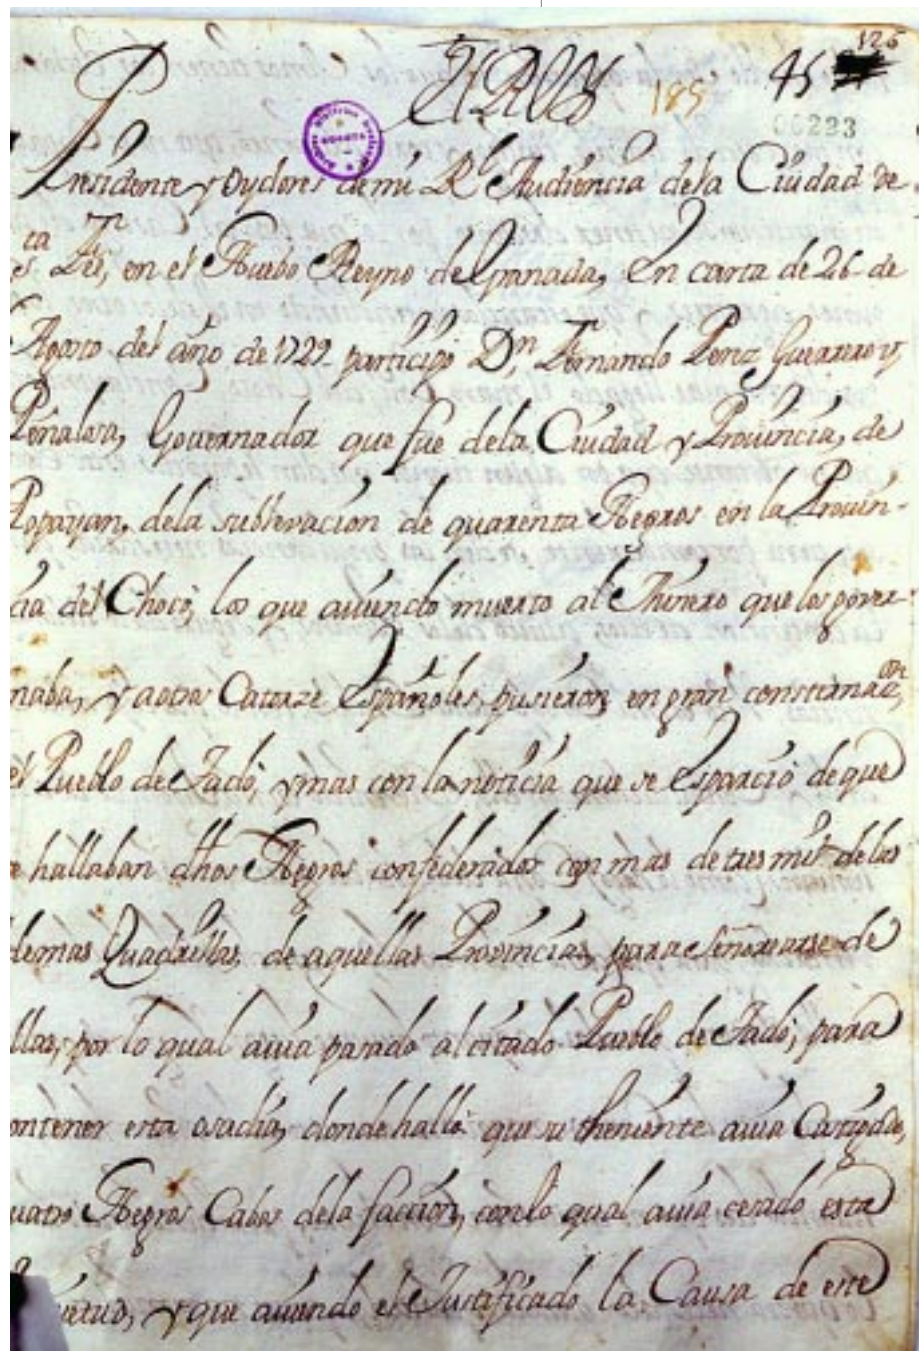 126
El Rey
185
45
00223
Presidente y Oydores de mi Rl. Audiencia de la Ciudad de
ta Fe, en el Nuebo Reyno de Granada, En carta de 26 de
Agosto del año de 1729 participò Dn. Fernando Perez Guerrero y
Peñalosa, Governador que fue de la Ciudad y Provincia, de
Popayan, de la sublevacion de quarenta Negros en la Provin-
cia del Chocò, los que aviendo muerto al Minero que los gover-
naba, y a otros Catorze Españoles, pusieron en gran consternaon,
el Pueblo de Tadò, y mas con la noticia que se Esparciò de que
se hallaban dhos Negros confederados con mas de tres mil de las
demas Quadrillas, de aquellas Provincias, para señorearse de
ellas, por lo qual avia pasado al citado Pueblo de Tadò, para
contener esta osadia, donde hallò que su theniente avia Castigado,
quatro Negros Cabos de la faccion, con lo qual avia cesado esta
y que aviendo el Justificado la Causa de este